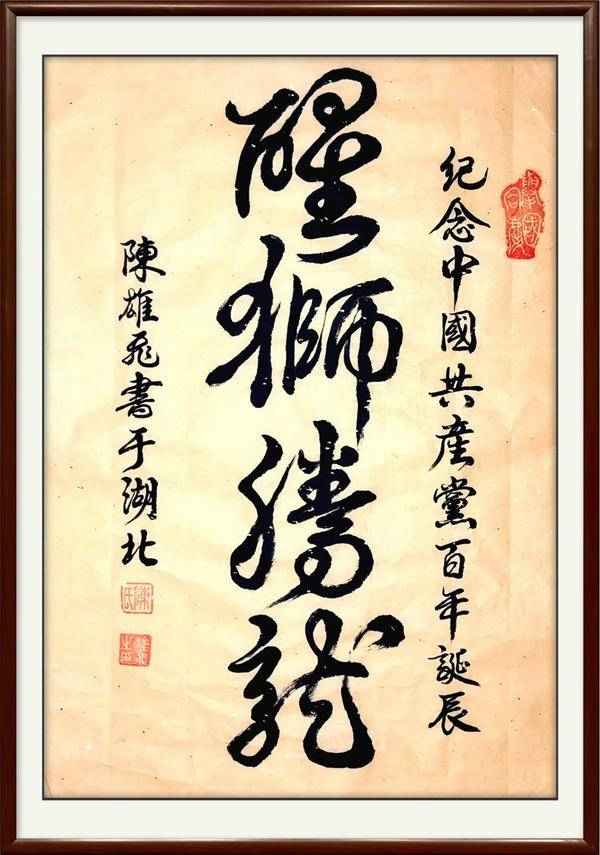 紀念中國共産黨百年誕辰
醒獅騰龍
陳雄飛書于湖北